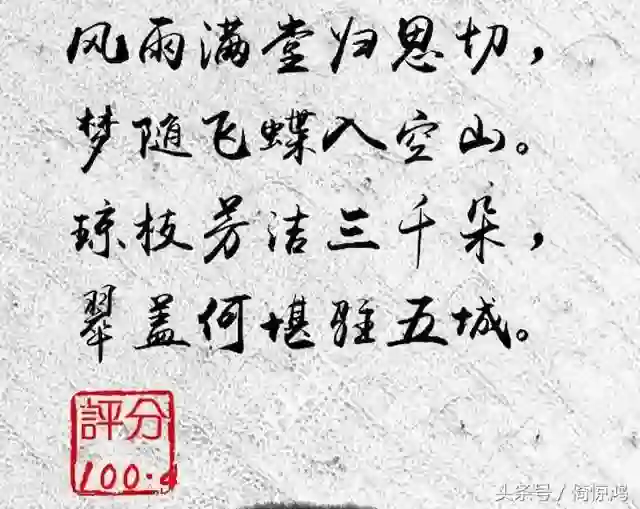 风雨满堂归思切，
梦随飞蝶入空山。
琼枝芳洁三千朵，
翠盖何堪驻五城。
評分
100.4
头条号/倚惊鸿